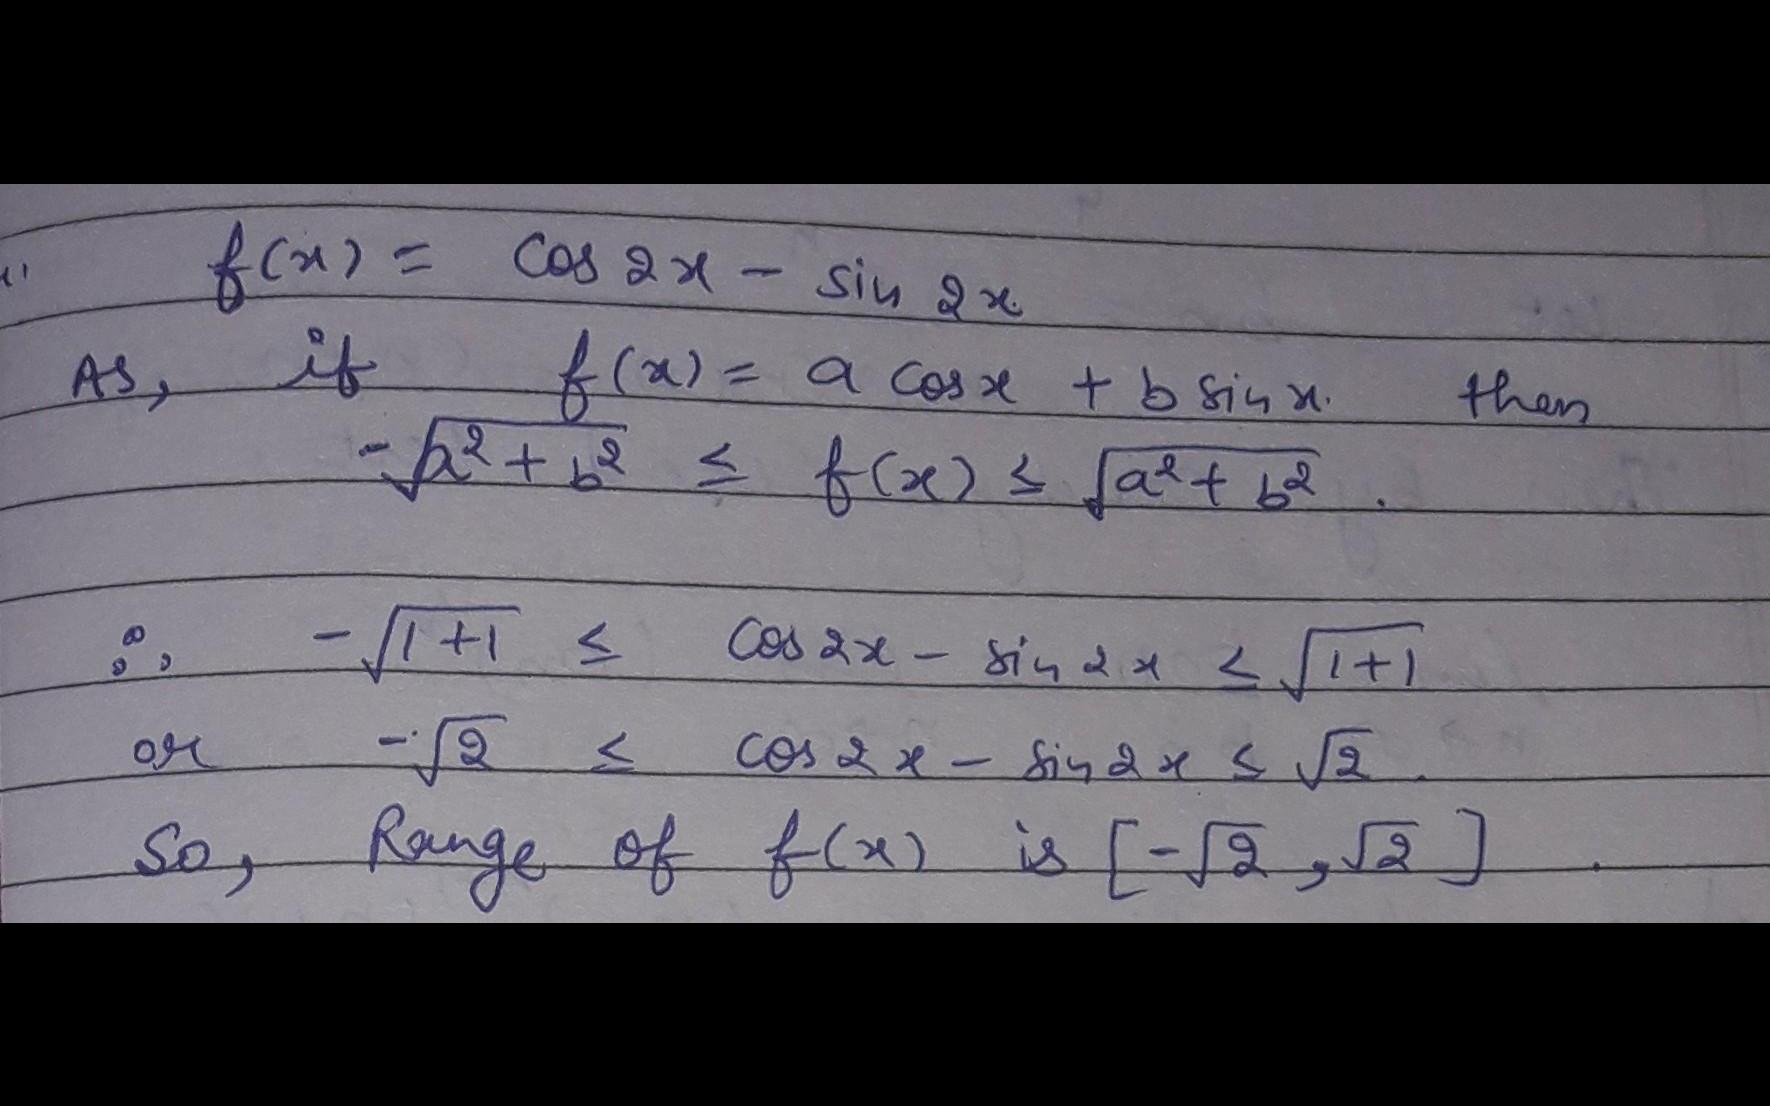 f(x) = cos 2x - sin 2x.
As, if f(x) = a cos x + b sin x. then
-√a² + b² ≤ f(x) ≤ √a² + b² .
∴, -√1+1 ≤ cos 2x - sin 2x ≤ √1+1
or -√2 ≤ cos 2x - sin 2x ≤ √2 .
So, Range of f(x) is [-√2 , √2 ] .